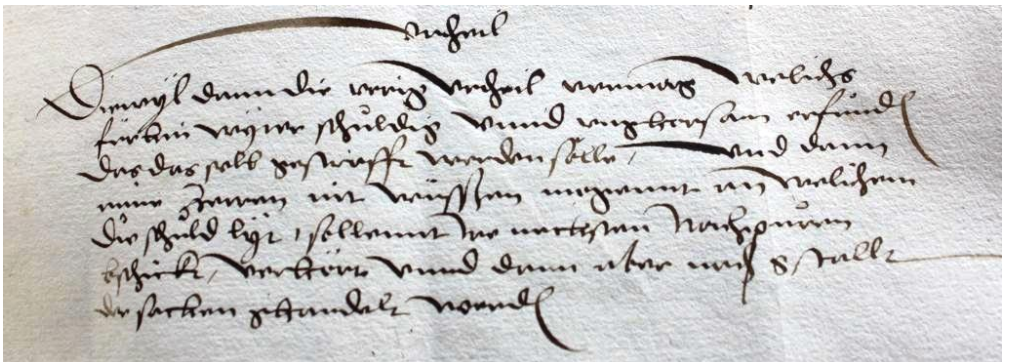 Urtheil
Diewyl dann die vorig Urtheil vermag welichs
fürhin wyter schuldig unnd unghorsam erfunden
das dasselb gestrafft werden sölle, und dann
mine Herren nit wüssen mögennt an welichem
die schuld lyt, sollennt ire nechsten Nachpuren
bschickt, verhört unnd dann aber nach gstallt
der sachen ghandelt werden